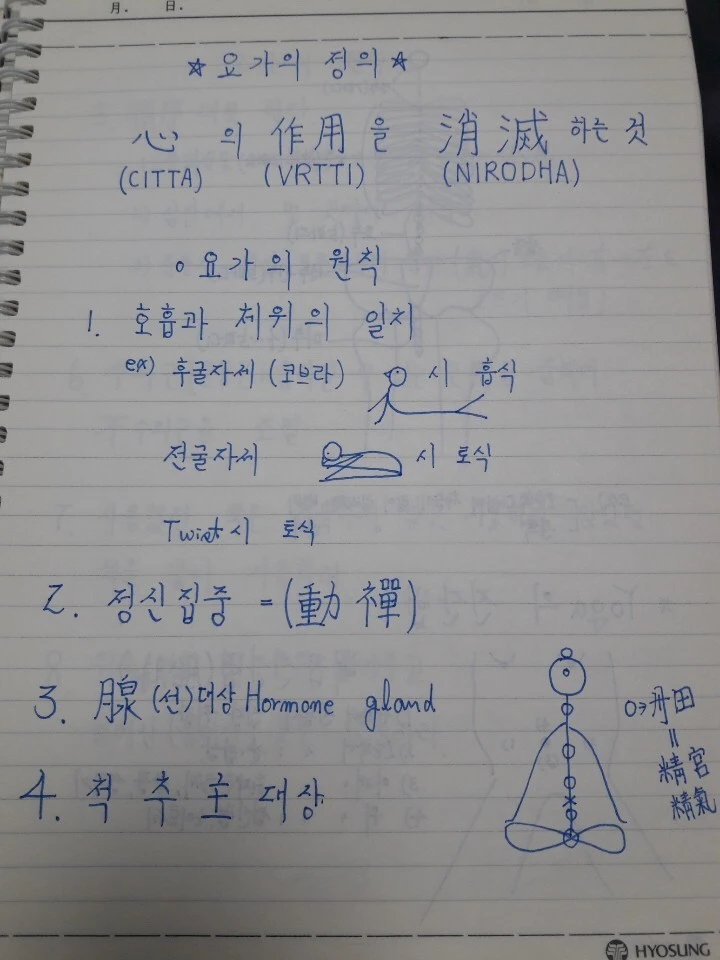 月. 日.
☆ 요가의 정의 ☆
心 의 作用 을 消滅 하는 것
(CITTA) (VRTTI) (NIRODHA)
o 요가의 원칙
1. 호흡과 체위의 일치
ex) 후굴자세 (코브라) 시 흡식
전굴자세 시 토식
Twist시 토식
2. 정신집중 = (動禪)
3. 腺(선)대상 Hormone gland
4. 척추主대상
o→丹田
=
精宮
精氣
HYOSUNG